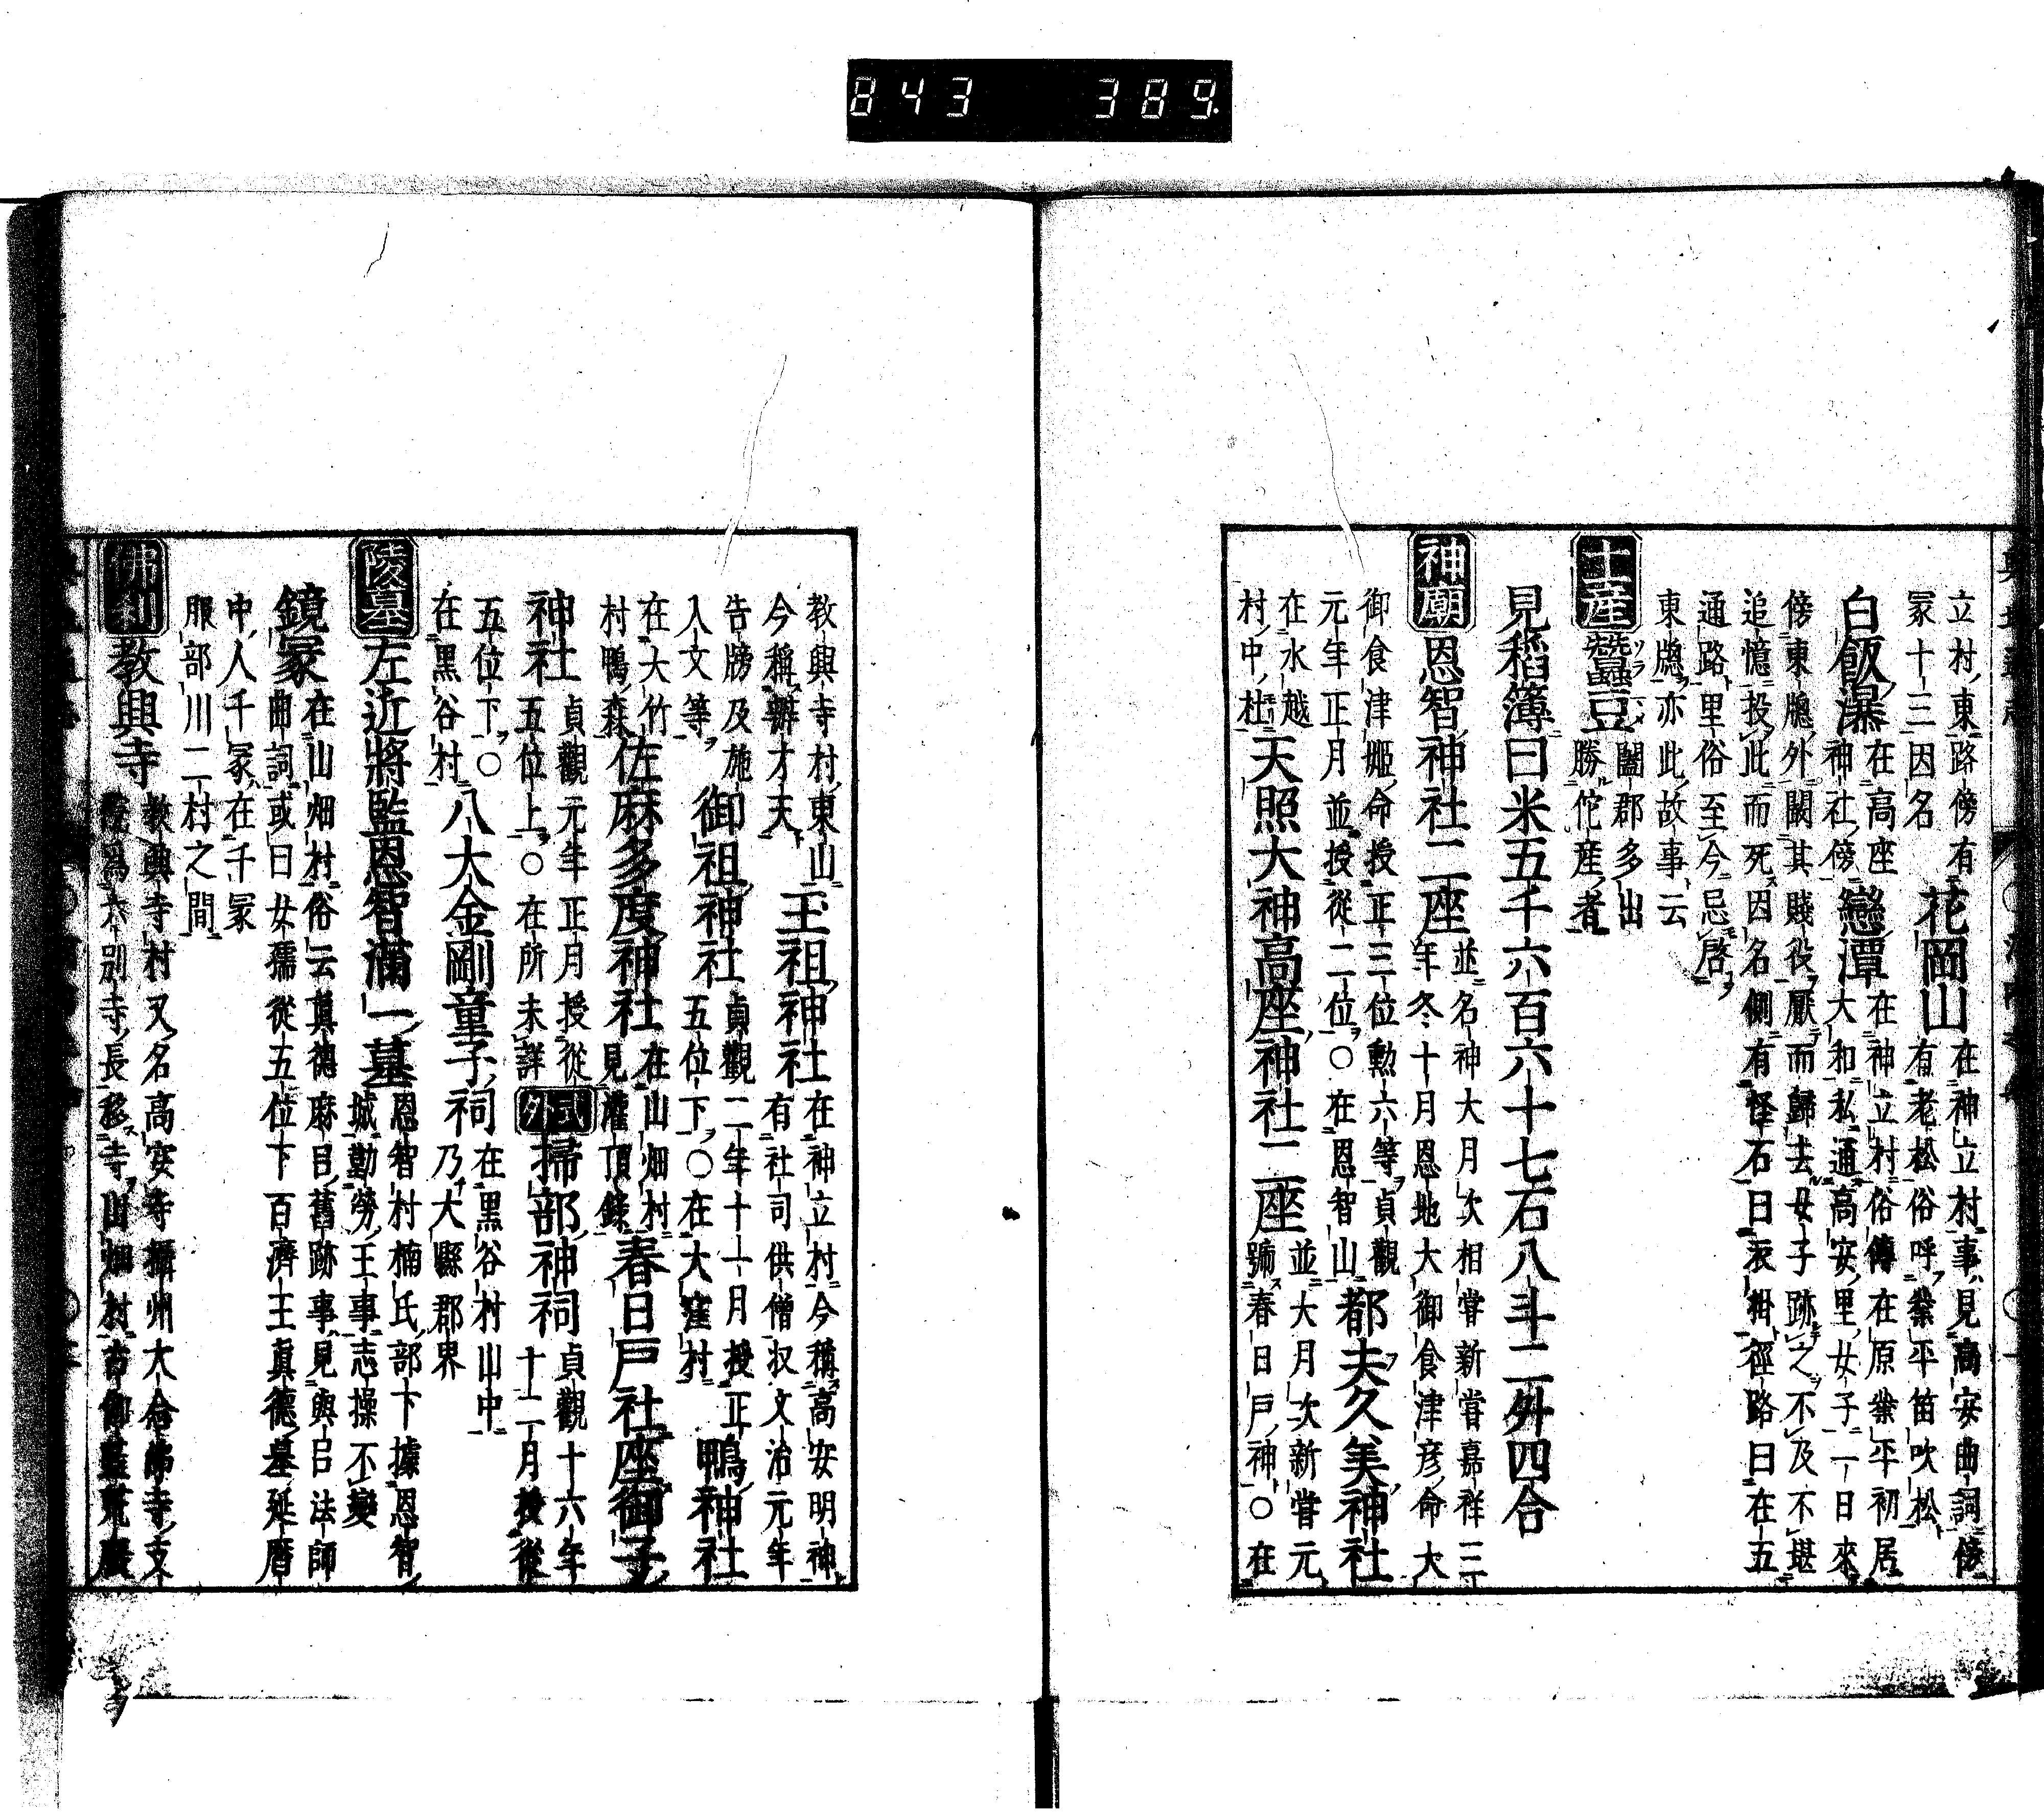 843 389
立村東路傍有
冢十三因名
花岡山
在神立村事見高安曲詞傍
有老松俗呼業平笛吹松
白飯瀑
在高座
神社傍
戀潭
在神立村俗傳在原業平初居
大和私通高安里女子一日來
傍東牕外闞其賤役厭而歸去女子跡之不及不堪
追憶投此而死因名側有怪石曰衣掛徑路曰在五
通路里俗至今忌啓
東牕亦此故事云
土産
蠶豆
闔郡多出
勝佗産者
見稻簿曰米五千六百六十七石八斗二升四合
神廟
恩智神社二座
並名神大月次相嘗新嘗嘉祥三
年冬十月恩地大御食津彦命大
御食津姫命授正三位勲六等貞觀
元年正月並授從二位○在恩智山
都夫久美神社
在水越
村中杜
天照大神高座神社二座
並大月次新嘗元
號春日戸神○在
教興寺村東山
今稱辨才天
玉祖神社
在神立村今稱高安明神
有社司供僧収文治元年
告牓及施
入文等
御祖神社
貞觀二年十一月授正
五位下○在大窪村
鴨神社
在大竹
村鴨森
佐麻多度神社
在山畑村
見灌頂錄
春日戸社座御子
神社
貞觀元年正月授從
五位上○在所未詳
式外
掃部神祠
貞觀十六年
十二月授從
五位下○
在黒谷村
八大金剛童子祠
在黒谷村山中
乃大縣郡界
陵墓
左近將監恩智滿一墓
恩智村楠氏部下據恩智
城勤勞王事志操不變
鏡冢
在山畑村俗云眞德麻呂舊跡事見興呂法師
曲詞或曰女孺從五位下百濟王眞德墓延暦
中人千冢在千冢
服部川二村之間
佛刹
教興寺
教興寺村又名高安寺攝州大念佛寺文
山畑村